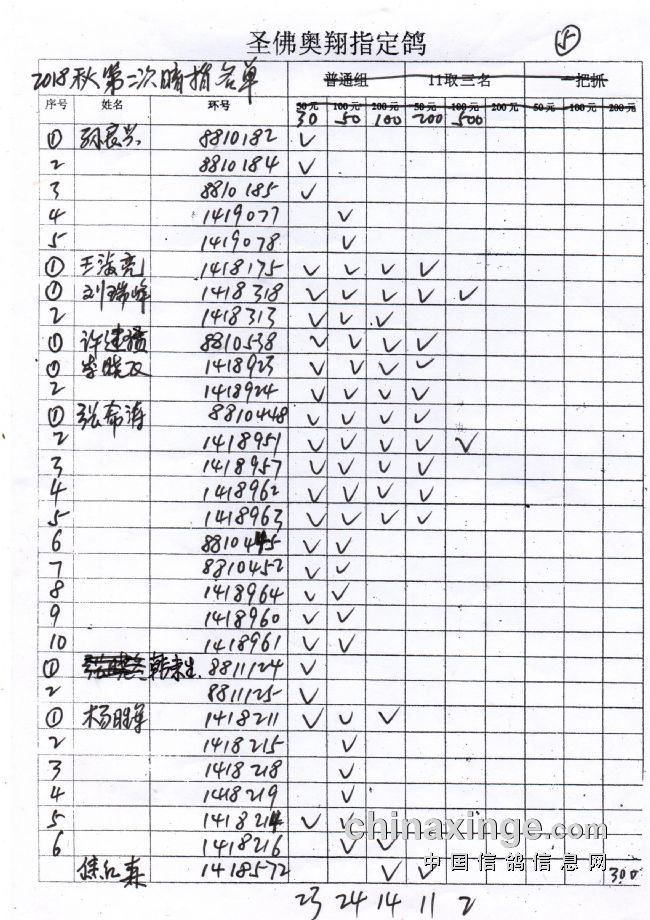 圣佛奥翔指定鸽 ⑤
2018秋第二次暗插名单 普通组 11取三名 一把抓
序号 姓名 环号 50元 100元 200元 50元 100元 200元 50元 100元 200元
30 50 100 200 500
① 8810182 ✓
2 8810184 ✓
3 8810185 ✓
4 1419077 ✓
5 1419078 ✓
① 王海亮 1418175 ✓ ✓ ✓ ✓
① 刘瑞峰 1418318 ✓ ✓ ✓ ✓ ✓
2 1418313 ✓ ✓ ✓
① 许建 8810538 ✓ ✓ ✓ ✓
① 李晓双 1418923 ✓ ✓ ✓ ✓
2 1418924 ✓ ✓ ✓ ✓
① 张希涛 8810448 ✓ ✓ ✓ ✓
2 1418951 ✓ ✓ ✓ ✓ ✓
3 1418957 ✓ ✓ ✓ ✓
4 1418962 ✓ ✓ ✓ ✓
5 1418963 ✓ ✓ ✓ ✓
6 8810445 ✓ ✓
7 8810452 ✓ ✓
8 1418964 ✓ ✓
9 1418960 ✓ ✓
10 1418961 ✓ ✓
① 韩来生 8811124 ✓
2 8811125 ✓
① 杨明军 1418211 ✓ ✓ ✓
2 1418215 ✓
3 1418218 ✓
4 1418219 ✓
5 1418214 ✓ ✓
6 1418216 ✓ ✓
1418572 ✓ ✓ 300
chinaxinge.com
中国信鸽信息网
23 24 14 11 2